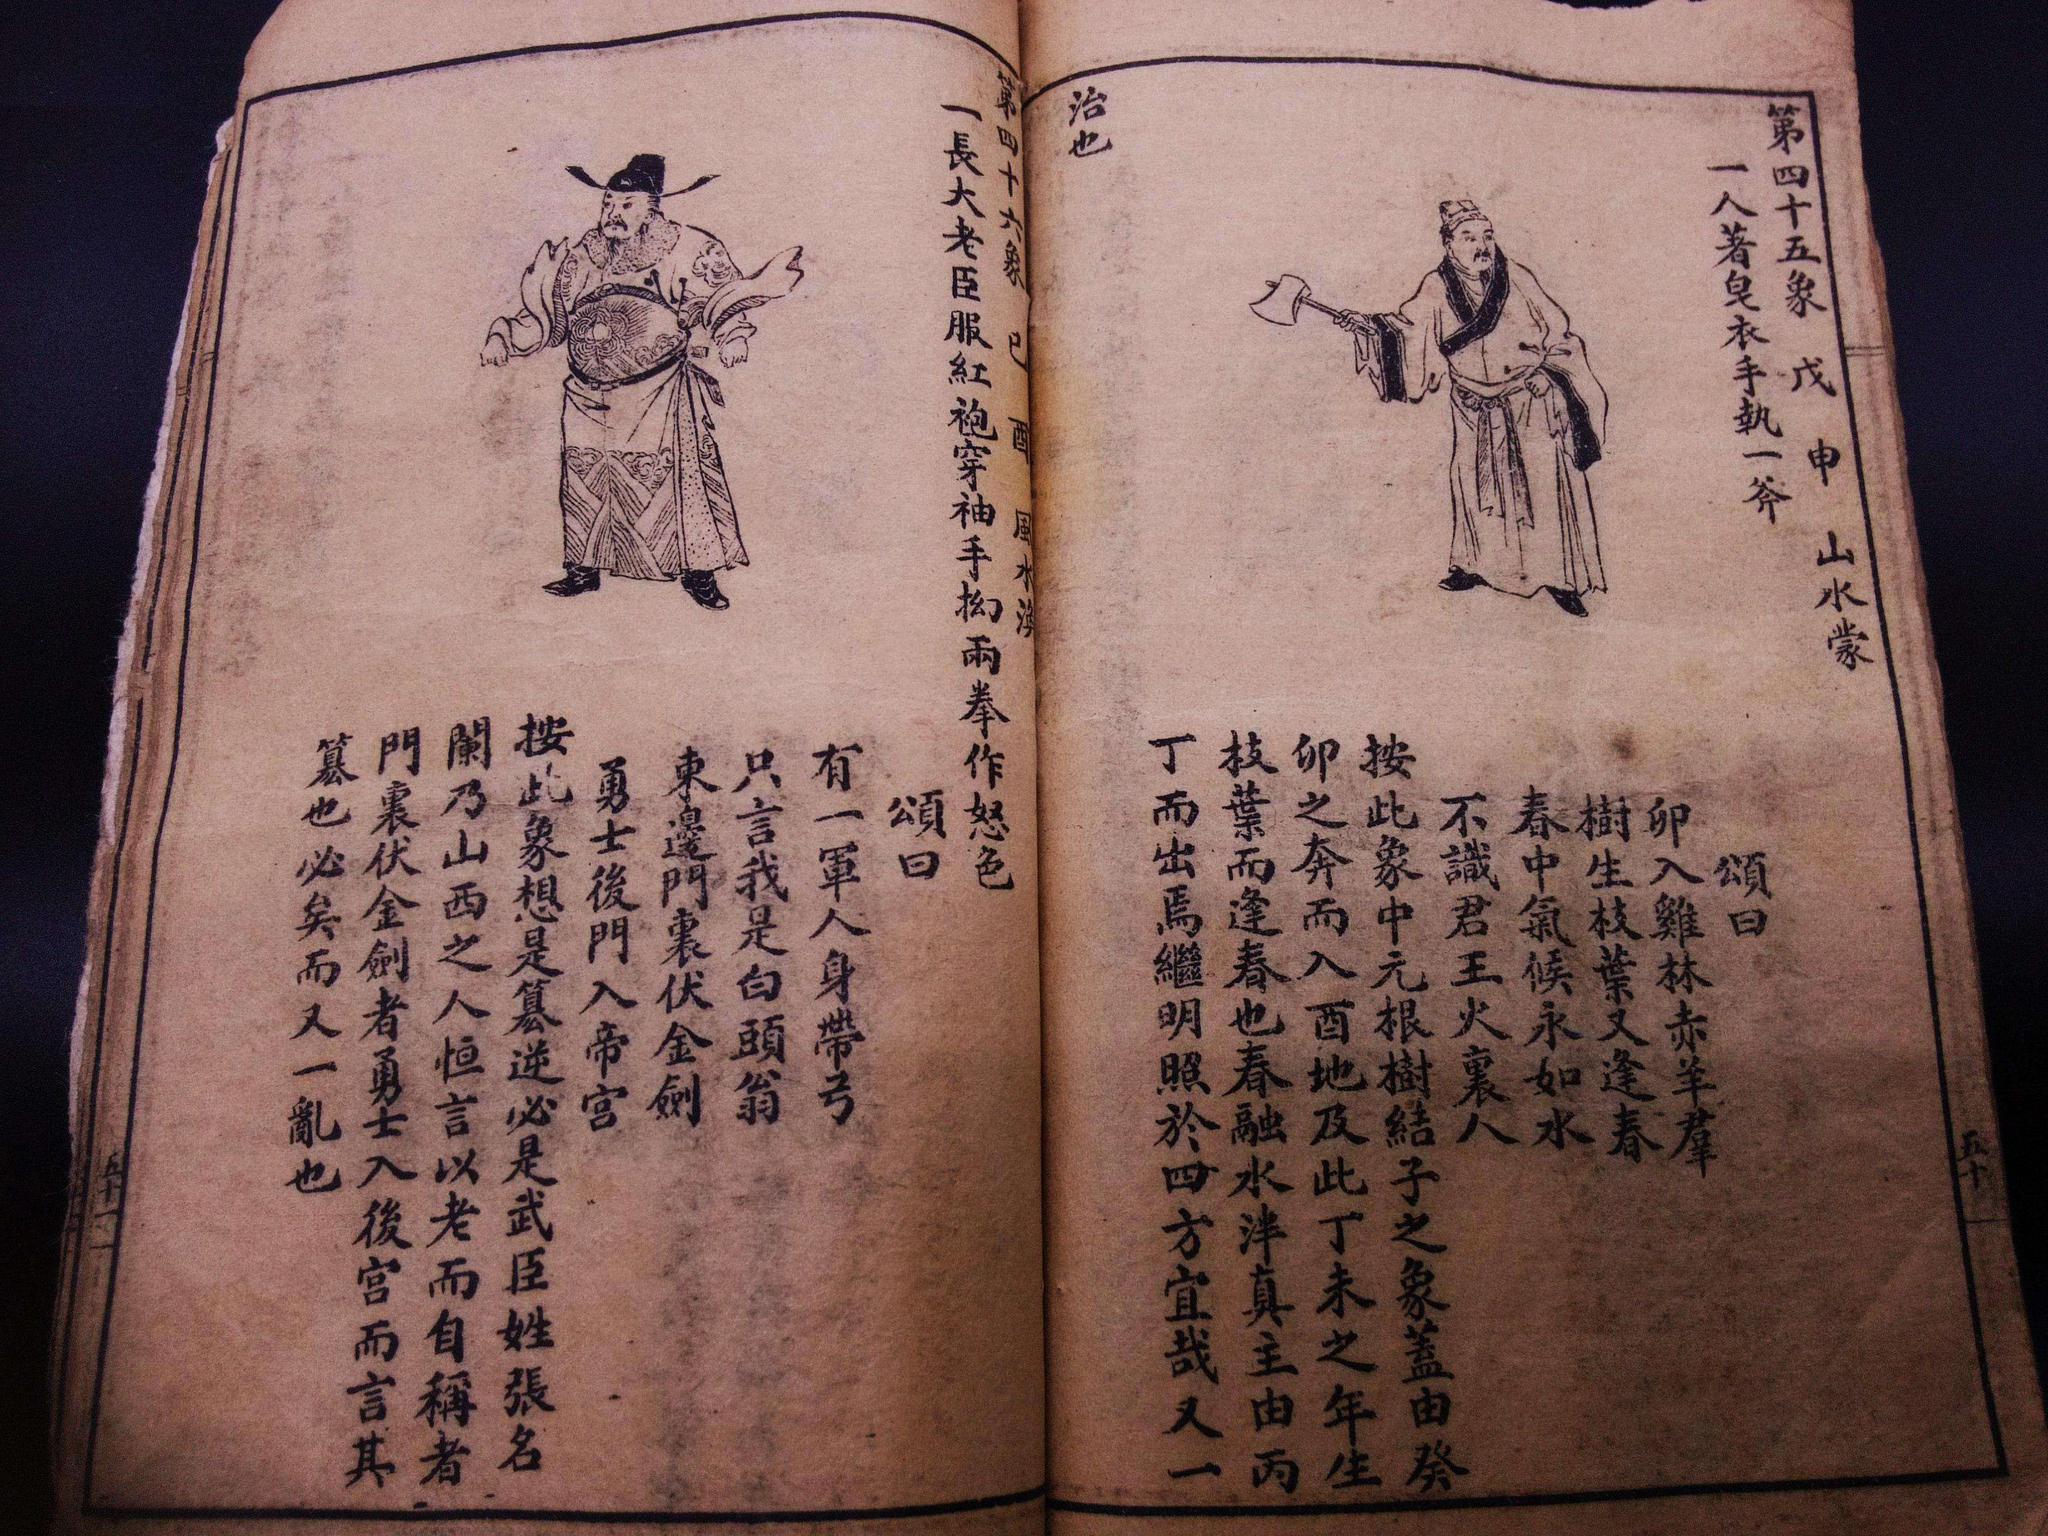 第四十五象 戊 申 山水蒙
一人著皂衣手執一斧
頌曰
卯入雞林赤羊羣
樹生枝葉又逢春
春中氣候永如水
不識君王火裏人
按此象中元根樹結子之象蓋由癸
卯之奔而入酉地及此丁未之年生
枝葉而逢春也春融水泮真主由丙
丁而出焉繼明照於四方宜哉又一
治也
五十
第四十六象 己 酉 風水渙
一長大老臣服紅袍穿袖手拗兩拳作怒色
頌曰
有一軍人身帶弓
只言我是白頭翁
東邊門裏伏金劍
勇士後門入帝宮
按此象想是篡逆必是武臣姓張名
闌乃山西之人恒言以老而自稱者
門裏伏金劍者勇士入後宮而言其
篡也必矣而又一亂也
五十一